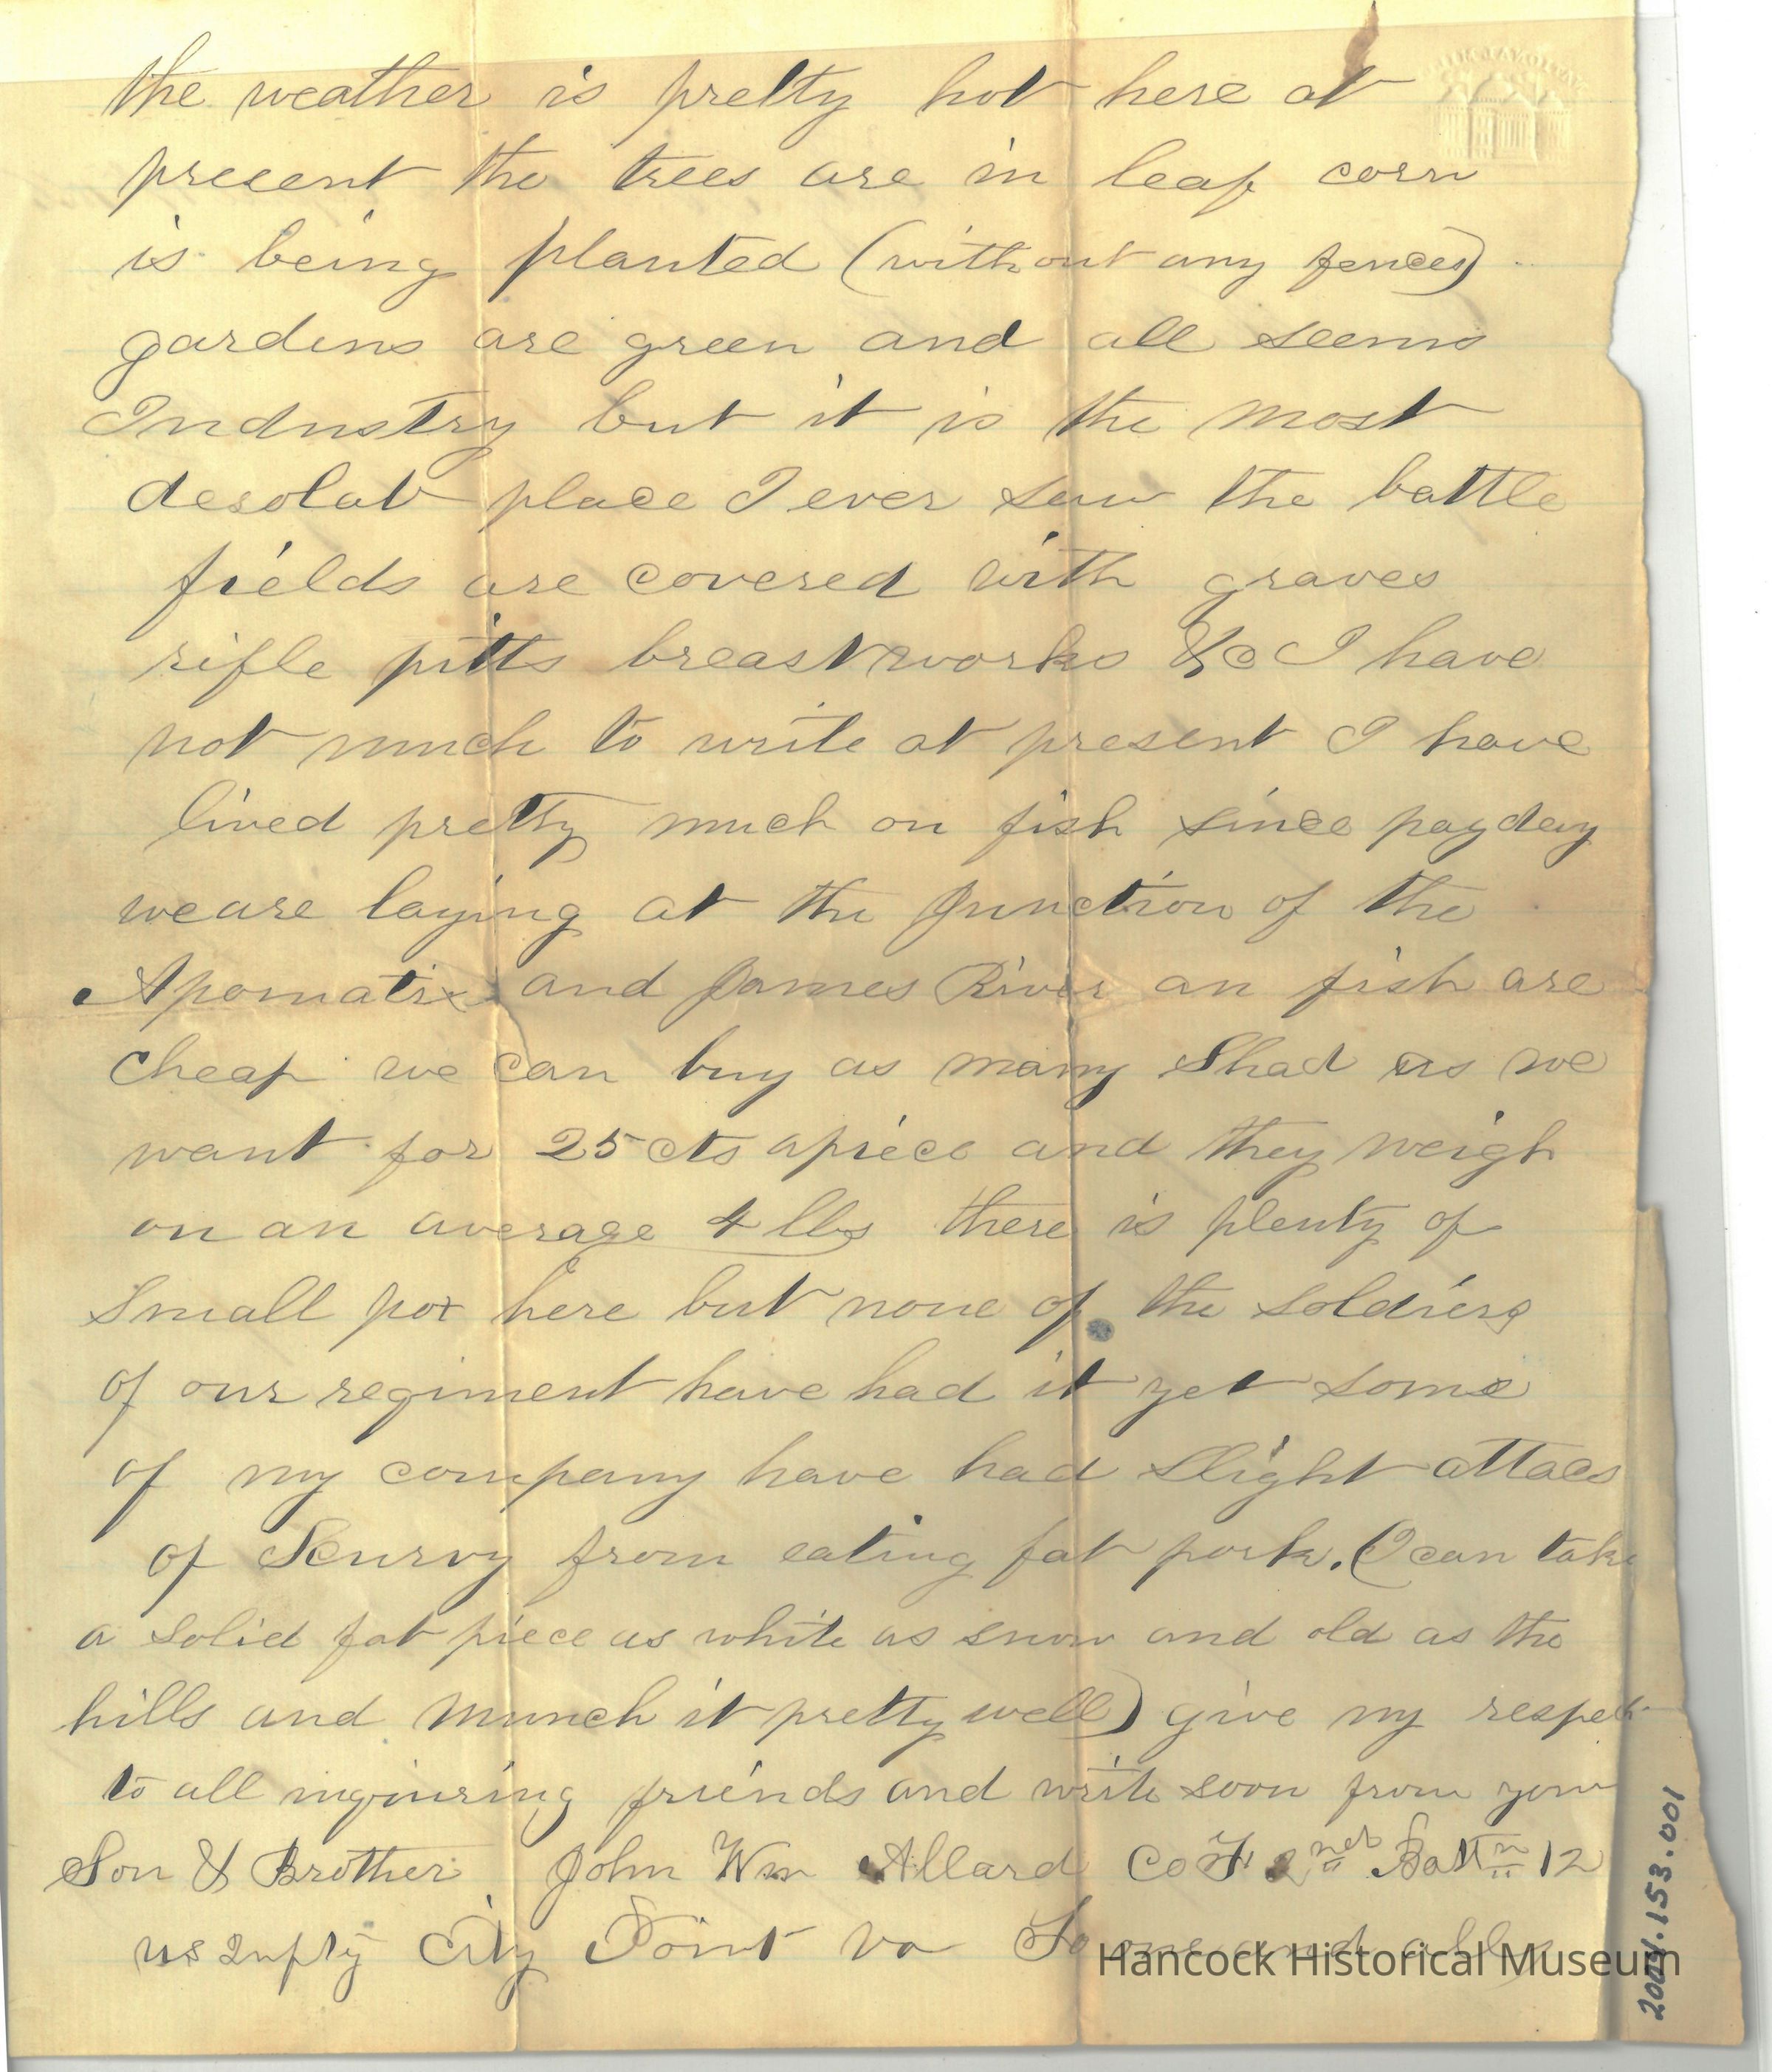 the weather is pretty hot here at
precent the trees are in leaf corn
is being planted (without any fences)
gardens are green and all seems
Industry but it is the most
desolat place I ever saw the battle
fields are covered with graves
rifle pitts breastworks &c I have
not much to write at present I have
lived pretty much on fish since payday
we are laying at the Junction of the
Apomatix and James River an fish are
cheap we can buy as many Shad as we
want for 25 cts apiece and they weigh
on an average 4 lbs there is plenty of
Small pox here but none of the soldiers
of our regiment have had it yet some
of my company have had slight attacs
of Scurvy from eating fat pork. (I can take
a solid fat piece as white as snow and old as the
hills and munch it pretty well) give my respect
to all inquiring friends and write soon from your
Son & Brother John Wm Allard Co F 2nd Battn 12
us Infty City Point Va To one and all
Hancock Historical Museum
2004.153.001